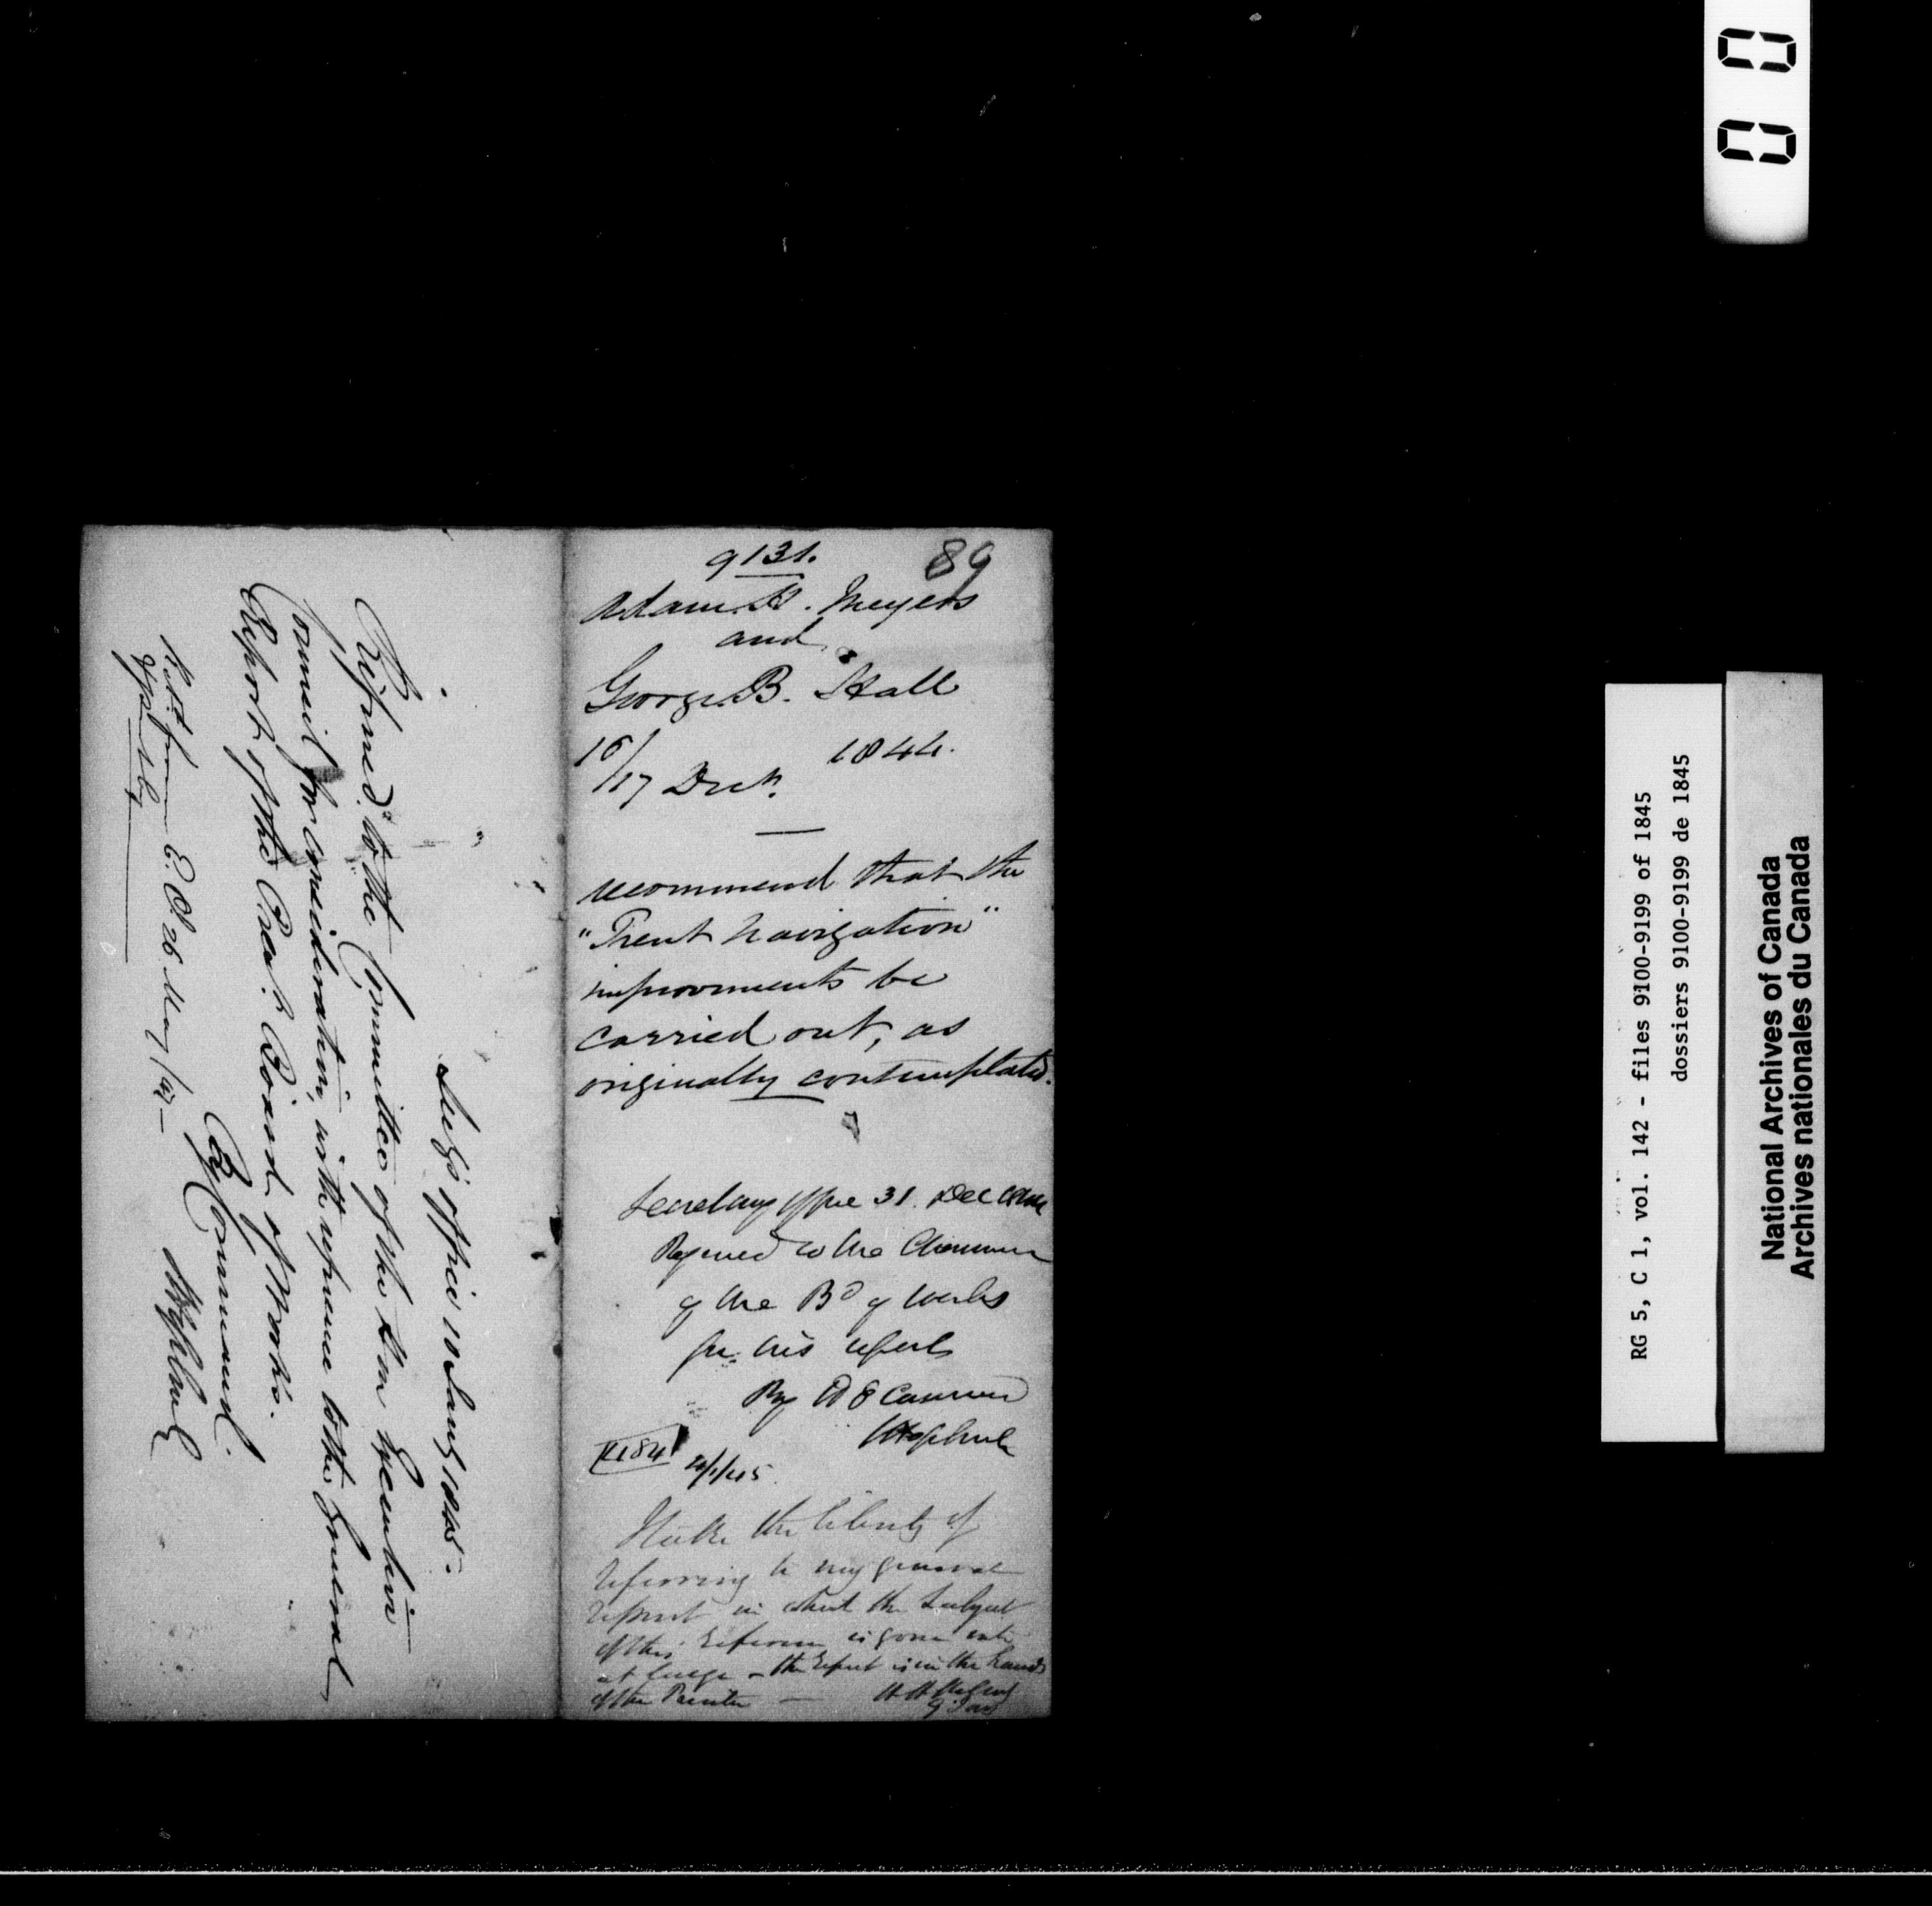 9131.
89
Adam H. Meyers
and
George B. Hall
16/17 Decr. 1844.
recommend that the
"Trent Navigation"
improvements be
carried out, as
originally contemplated.
Secretary's Office 31. Dec 1844
Referred to the Chairman
of the Bd of Works
for his report
By Command
4/1/45
I take the liberty of
referring to my general
report in which the subject
of this reference is gone into
at large - the report is in the hands
of the Printer -
Secy's Office 10 Jany 1845.
Referred to the Committee of the Hon Executive
Council for consideration, with reference to the General
Report of the Presdt. Board of Works.
By Command.
from E. O. 26 May
RG 5, C 1, vol. 142 - files 9100-9199 of 1845
dossiers 9100-9199 de 1845
National Archives of Canada
Archives nationales du Canada